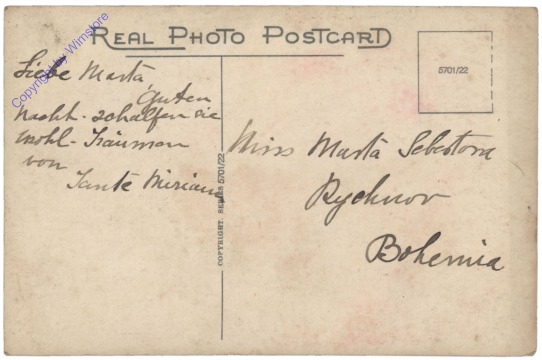 REAL PHOTO POSTCARD
Copyright by Wimstore
5701/22
Liebe Marta
Guten
Nacht - schalfen sie
wohl - Träumen
von
Tante Miriam
COPYRIGHT. SERIES 5701/22
Miss Marta Sebestova
Rychnov
Bohemia